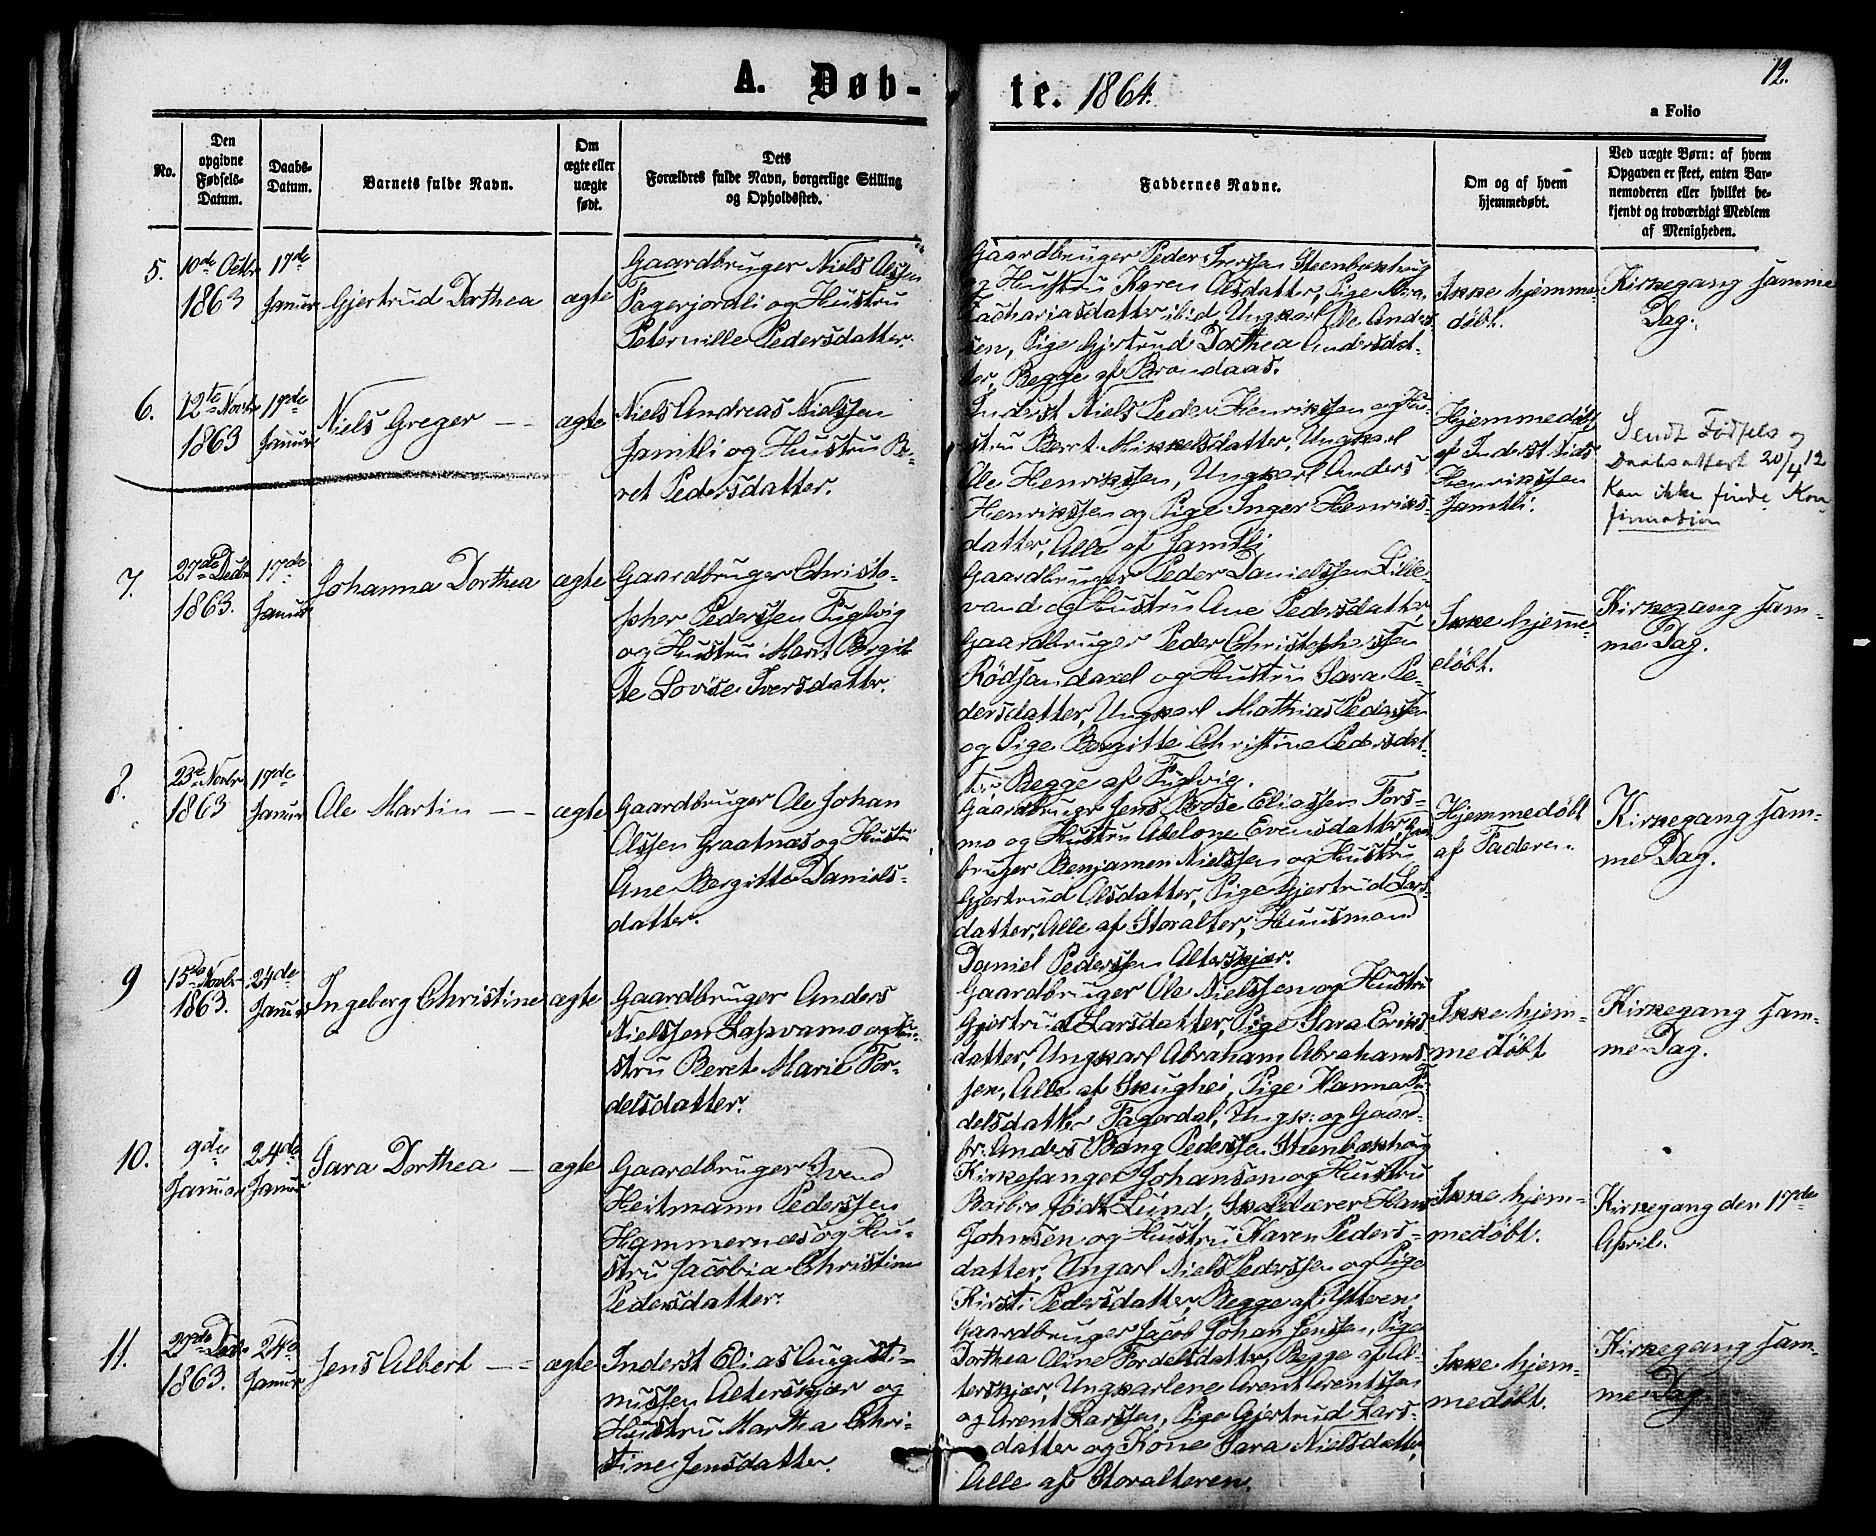 A. Døb-
te. 1864.
12.
a Folio
No.
Den
opgivne
Fødsels-
Datum.
Daabs-
Datum.
Barnets fulde Navn.
Om
ægte eller
uægte
født.
Dets
Forældres fulde Navn, borgerlige Stilling
og Opholdssted.
Faddernes Navne.
Om og af hvem
hjemmedøbt.
Ved uægte Børn: af hvem
Opgaven er skeet, enten Bar-
nemoderen eller hvilket be-
kjendt og troværdigt Medlem
af Menigheden.
5.
10de Octbr
1863
17de
Januar
Gjertrud Dorthea
ægte
Gaardbruger Niels Olsen
Fagerjordli og Hustru
Peternille Pedersdatter.
Gaardbruger Peder Iversen Steenbækhaug
og Hustru Karen Olsdatter, Pige
Zachariasdatter ibid, Ungkarl Ole Anders-
sen, Pige Gjertrud Dorthea Andersdat-
ter, Begge af Brændaas.
Ikke hjemme-
døbt.
Kirkegang samme
Dag.
6.
12te Novbr
1863
17de
Januar
Niels Greger - -
ægte
Niels Andreas Nielssen
Jamtli og Hustru Be-
ret Pedersdatter.
Inderst Niels Peder Henrikssen og Hu-
stru Beret Mikkelsdatter, Ungkarl
Ole Henrikssen, Ungkarl Anders
Henrikssen og Pige Inger Henriks-
datter, Alle af Jamtli
Hjemmedøbt
af Inderst Niels
Henrikssen
Jamtli.
Sendt Fødsels og
Daabsattest 20/4 12
Kan ikke finde Kon-
firmation
7.
27de Decbr
1863.
17de
Januar
Johanna Dorthea
ægte
Gaardbruger Christo-
pher Pederssen Fuglvig
og Hustru Marit Bergit-
te Lovise Iversdatter.
Gaardbruger Peder Danielssen Lille-
vand og Hustru Ane Pedersdatter
Gaardbruger Peder Christophersen
Rødsandaxel og Hustru Sara Pe-
dersdatter, Ungkarl Mathias Pederssen
og Pige Bergitte Christine Pedersdat-
ter, Begge af Fuglvig.
Ikke hjemme-
døbt.
Kirkegang sam-
me Dag.
8.
23de Novbr
1863
17de
Januar
Ole Martin - -
ægte
Gaardbruger Ole Johan
Olssen Graatnæs og Hustru
Ane Bergitte Daniels-
datter.
Gaardbruger Jens Eliassen Fors-
mo og Hustru Abelone Evensdatter, Gaard-
bruger Benjamen Nielssen og Hustru
Gjertrud Olsdatter, Pige Gjertrud Lars-
datter, Alle af Storalter, Huusmand
Daniel Pederssen Alterskjær.
Hjemmedøbt
af Faderen.
Kirkegang sam-
me Dag.
9
15de Novbr
1863.
24de
Januar
Ingeberg Christine
ægte
Gaardbruger Anders
Nielssen Lasvamo og Hu-
stru Beret Marie For-
delsdatter.
Gaardbruger Ole Nielssen og Hustru
Gjertrud Larsdatter, Pige Sara Eriks-
datter, Ungkarl Abraham Abrahams-
sen, Alle af Skughei, Pige Hanna For-
delsdatter Fagerdal, Ungk: og Gaar-
br: Anders Bang Pederssen Steenbækhaug
Ikke hjem-
medøbt
Kirkegang sam-
me Dag.
10.
9de
Januar
24de
Januar
Sara Dorthea -
ægte
Gaardbruger Svend
Heitmann Pederssen
Hammernæs og Hu-
stru Jacobia Christine
Pedersdatter.
Kirkesanger Johansen og Hustru
Barbro født Lund, Skolelærer Hans
Johnsen og Hustru Karen Peders-
datter, Ungarl Niels Pederssen og Pige
Kirsti Pedersdatter, Begge af Ytteren.
Ikke hjem-
medøbt.
Kirkegang den 17de
April.
11.
27de Decbr
1863.
24de
Januar
Jens Albert - -
ægte
Inderst Elias Augusti-
nussen Alterskjær og
Hustru Martha Chri-
stine Jensdatter.
Gaardbruger Jacob Johan Jenssen, Pige
Dorthea Oline Fordelsdatter, Begge af Al-
terskjær, Ungkarlene Arent Arentssen
og Arent Larssen, Pige Gjertrud Lars-
datter og Kone Sara Nielsdatter,
Alle af Storalteren.
Ikke hjem-
medøbt.
Kirkegang sam-
me Dag.